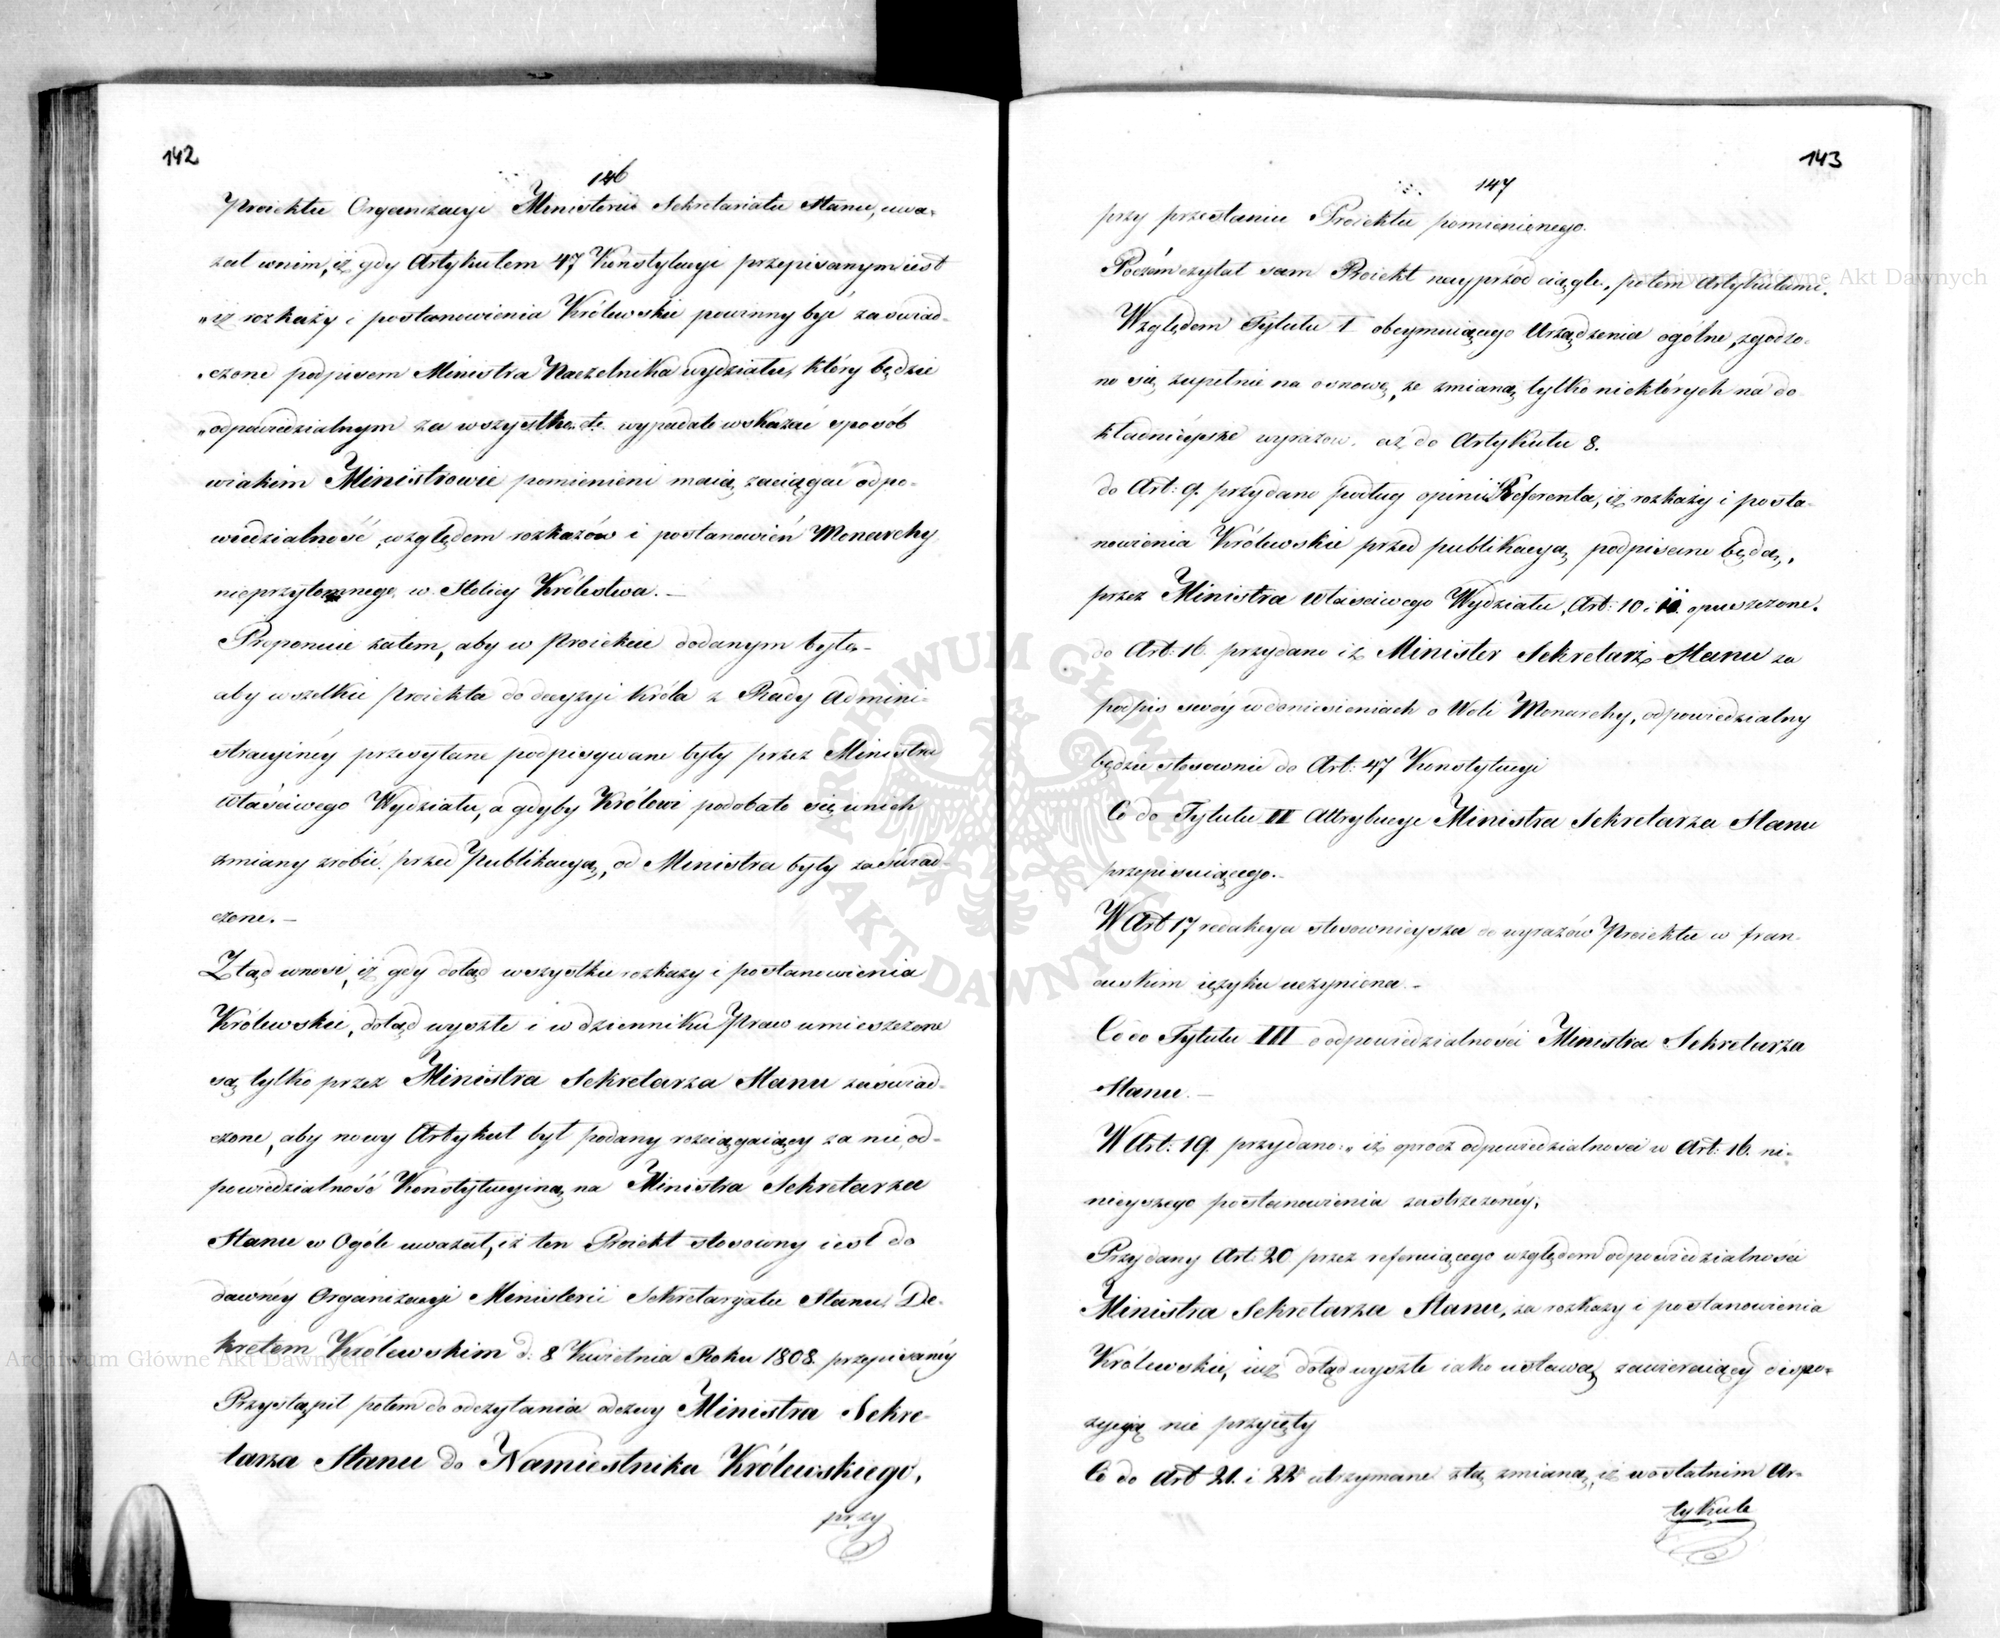 142
146
Proiektu Organizacyi Ministerii Sekretariatu Stanu, uwa-
żał wnim, iż gdy Artykułem 47 Konstytucyi przepisanym iest
„iż rozkazy i postanowienia Królewskie powinny być zaświad-
„czone podpisem Ministra Naczelnika wydziału, który będzie
„odpowiedzialnym za wszystko etc. wypadało wskazać sposób
wiakim Ministrowie pomienieni maią zaciągać odpo-
wiedzialność, względem rozkazów i postanowień Monarchy
nieprzytomnego w Stolicy Królestwa. —
Proponuie zatem, aby w Proiekcie dodanym było—
aby wszelkie Proiekta do decyzyi Króla z Rady Admini-
stracyinéy przesyłane podpisywane były przez Ministra
właściwego Wydziału, a gdyby Królowi podobało się unich
zmiany zrobić, przed Publikacyą, od Ministra były zaświad-
czone. —
Ztąd wnosi, iż gdy dotąd wszystkie rozkazy i postanowienia
Królewskie, dotąd wyszłe i w dzienniku Praw umieszczone
są tylko przez Ministra Sekretarza Stanu zaświad-
czone, aby nowy Artykuł był podany rozciągaiący za nie od-
powiedzialność Konstytucyiną na Ministra Sekretarza
Stanu w Ogóle uważał, iż ten Proiekt stosowny iest do
dawnéy Organizacyi Ministerii Sekretaryatu Stanu, De-
kretem Królewskim d. 8 Kwietnia Roku 1808. przepisanéy
Przystąpił potem do odczytania odezwy Ministra Sekre-
tarza Stanu do Namiestnika Królewskiego,
przy
143
147
przy przesłaniu Proiektu pomienionego.
Poczém czytał sam Proiekt nayprzód ciągle, potem Artykułami.
Względem Tytułu I obeymuiącego Urządzenia ogólne, zgodzo-
no się zupełnie na osnowę, ze zmianą tylko niektórych na do-
kładnieysze wyrazów, aż do Artykułu 8.
do Art: 9. przydano podług opinii Referenta, iż rozkazy i posta-
nowienia Królewskie przed publikacyą podpisane będą,
przez Ministra właściwego Wydziału, Art: 10 i 11. opuszczone.
do Art: 16. przydano iż Minister Sekretarz Stanu za
podpis swóy wdoniesieniach o Woli Monarchy, odpowiedzialny
będzie stosownie do Art: 47 Konstytucyi
Co do Tytułu II Attrybucye Ministra Sekretarza Stanu
przepisuiącego.—
W Art 17 redakcya stosownieysza do wyrazów Proiektu w fran-
cuskim ięzyku uczyniona.—
Co do Tytułu III o odpowiedzialności Ministra Sekretarza
Stanu. —
W Art: 19. przydano: „iż oprócz odpowiedzialności w Art: 16. ni-
nieyszego postanowienia zastrzeżonéy.
Przydany Art: 20 przez referuiącego względem odpowiedzialności
Ministra Sekretarza Stanu, za rozkazy i postanowienia
Królewskie, iuż dotąd wyszłe iako ustawą zawieraiący dispo-
zycyą nie przyięty
Co do Art 21. i 22 utrzymane ztą zmianą, iż w ostatnim Ar-
tykule
ARCHIWUM GŁÓWNE AKT DAWNYCH
Archiwum Główne Akt Dawnych
Archiwum Główne Akt Dawnych